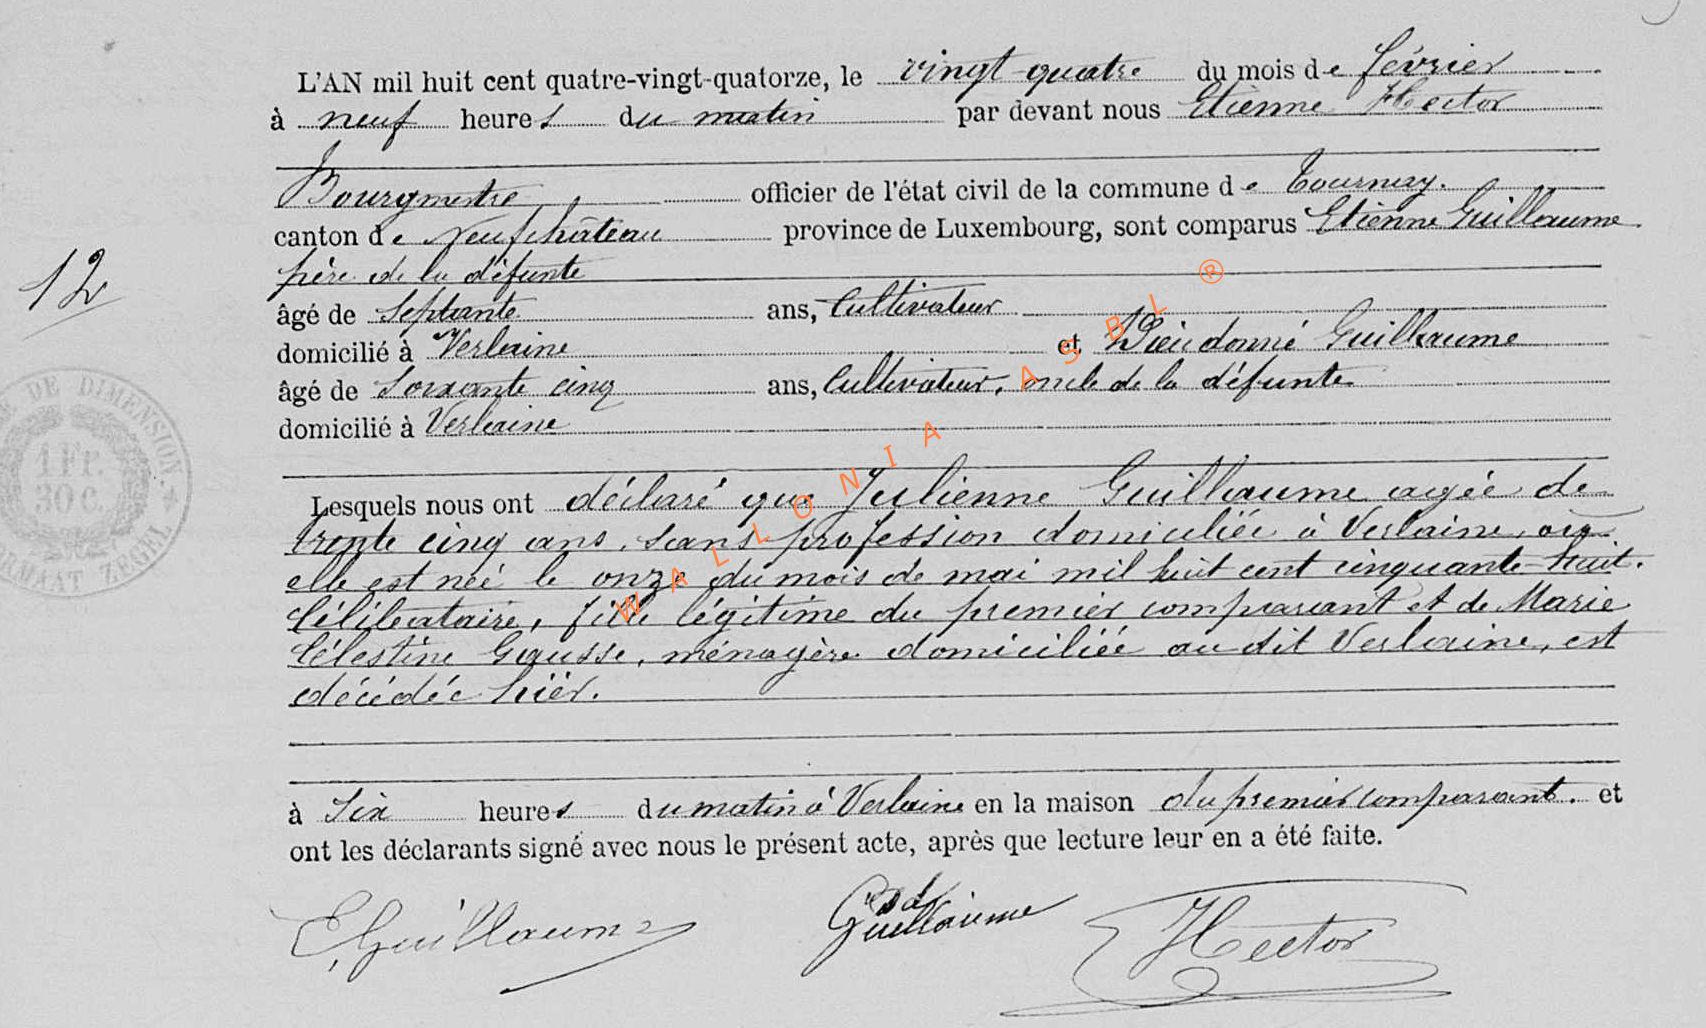 L'AN mil huit cent quatre-vingt-quatorze, le vingt-quatre du mois de février
à neuf heures du matin par devant nous Etienne Hector
Bourgmestre officier de l'état civil de la commune de Tournay.
canton de Neufchâteau province de Luxembourg, sont comparus Etienne Guillaume
père de la défunte
12
âgé de septante ans, Cultivateur
domicilié à Verlaine et Dieudonné Guillaume
âgé de soixante cinq ans, Cultivateur, oncle de la défunte
domicilié à Verlaine
DE DIMENSION.
1 Fr.
30 C.
ZEGEL
Lesquels nous ont déclaré que Julienne Guillaume agée de
trente cinq ans, sans profession domiciliée à Verlaine, où
elle est née le onze du mois de mai mil huit cent cinquante-huit.
Célibataire, fille légitime du premier comparant et de Marie
Célestine Gausse, ménagère domiciliée au dit Verlaine, est
décédée hier.
à six heures du matin à Verlaine en la maison du premier comparant. et
ont les déclarants signé avec nous le présent acte, après que lecture leur en a été faite.
E, Guillaume
Guillaume
Hector
WALLONIA ASBL ®